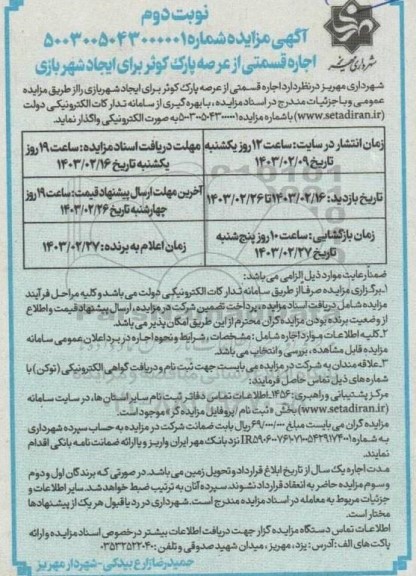 نوبت دوم
آگهی مزایده شماره ۵۰۰۳۰۰۵۰۴۳۰۰۰۰۰۱
اجاره قسمتی از عرصه پارک کوثر برای ایجاد شهر بازی
شهرداری مهریز
شهرداری مهریز در نظر دارد اجاره قسمتی از عرصه پارک کوثر برای ایجاد شهربازی را از طریق مزایده
عمومی و با جزئیات مندرج در اسناد مزایده، با بهره گیری از سامانه تدارکات الکترونیکی دولت
(www.setadiran.ir) با شماره مزایده ۵۰۰۳۰۰۵۰۴۳۰۰۰۰۰۱ به صورت الکترونیکی واگذار نماید.
زمان انتشار در سایت: ساعت ۱۲ روز یکشنبه
تاریخ ۱۴۰۳/۰۲/۰۹
مهلت دریافت اسناد مزایده: ساعت ۱۹ روز
یکشنبه تاریخ ۱۴۰۳/۰۲/۱۶
تاریخ بازدید: ۱۴۰۳/۰۲/۱۶ تا ۱۴۰۳/۰۲/۲۶
آخرین مهلت ارسال پیشنهاد قیمت: ساعت ۱۹ روز
چهارشنبه تاریخ ۱۴۰۳/۰۲/۲۶
زمان بازگشایی: ساعت ۱۰ روز پنج شنبه
تاریخ ۱۴۰۳/۰۲/۲۷
زمان اعلام به برنده: ۱۴۰۳/۰۲/۲۷
ضمناً رعایت موارد ذیل الزامی می باشد:
۱ـ برگزاری مزایده صرفاً از طریق سامانه تدارکات الکترونیکی دولت می باشد و کلیه مراحل فرآیند
مزایده شامل دریافت اسناد مزایده، پرداخت تضمین شرکت در مزایده، ارسال پیشنهاد قیمت و اطلاع
از وضعیت برنده بودن مزایده گران محترم از این طریق امکان پذیر می باشد.
۲ـ کلیه اطلاعات موارد اجاره شامل: مشخصات، شرایط و نحوه اجاره در برد اعلان عمومی سامانه
مزایده قابل مشاهده، بررسی و انتخاب می باشد.
۳ـ علاقه مندان به شرکت در مزایده می بایست جهت ثبت نام و دریافت گواهی الکترونیکی (توکن) با
شماره های ذیل تماس حاصل فرمایند:
مرکز پشتیبانی و راهبری: ۱۴۵۶ـ اطلاعات تماس دفاتر ثبت نام سایر استان ها، در سایت سامانه
(www.setadiran.ir) بخش «ثبت نام / پروفایل مزایده گر» موجود است.
مزایده گران می بایست مبلغ ۶۹/۰۰۰/۰۰۰ ریال بابت ضمانت شرکت در مزایده به حساب سپرده شهرداری
به شماره نزد بانک مهر ایران واریز و یا ارائه ضمانت نامه بانکی اقدام
نمایند.
مدت اجاره یک سال از تاریخ ابلاغ قرارداد و تحویل زمین می باشد. در صورتی که برندگان اول و دوم
و سوم مزایده حاضر به انعقاد قرارداد نشوند، سپرده آنان به ترتیب ضبط خواهد شد. سایر اطلاعات و
جزئیات مربوط به معامله در اسناد مزایده مندرج است. شهرداری در رد یا قبول هر یک از پیشنهادها
مختار است.
اطلاعات تماس دستگاه مزایده گزار جهت دریافت اطلاعات بیشتر در خصوص اسناد مزایده و ارائه
پاکت های الف: آدرس: یزد، مهریز، میدان شهید صدوقی و تلفن: ۰۳۵۳۲۵۲۲۰۴۰
حمیدرضا زارع بیدکی- شهردار مهریز